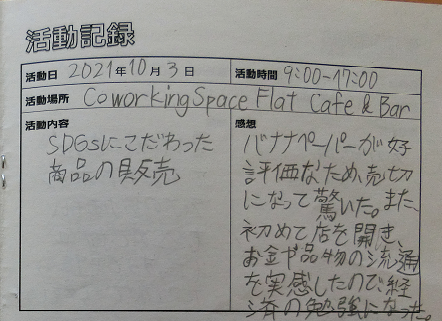 活動記録
活動日 2021年10月3日 活動時間 9:00-17:00
活動場所 CoworkingSpace Flat Cafe & Bar
活動内容
SDGsにこだわった
商品の販売
感想
バナナペーパーが好
評価なため、売切
になって驚いた。また、
初めて店を開き、
お金や品物の流通
を実感したので、経
済の勉強になった。